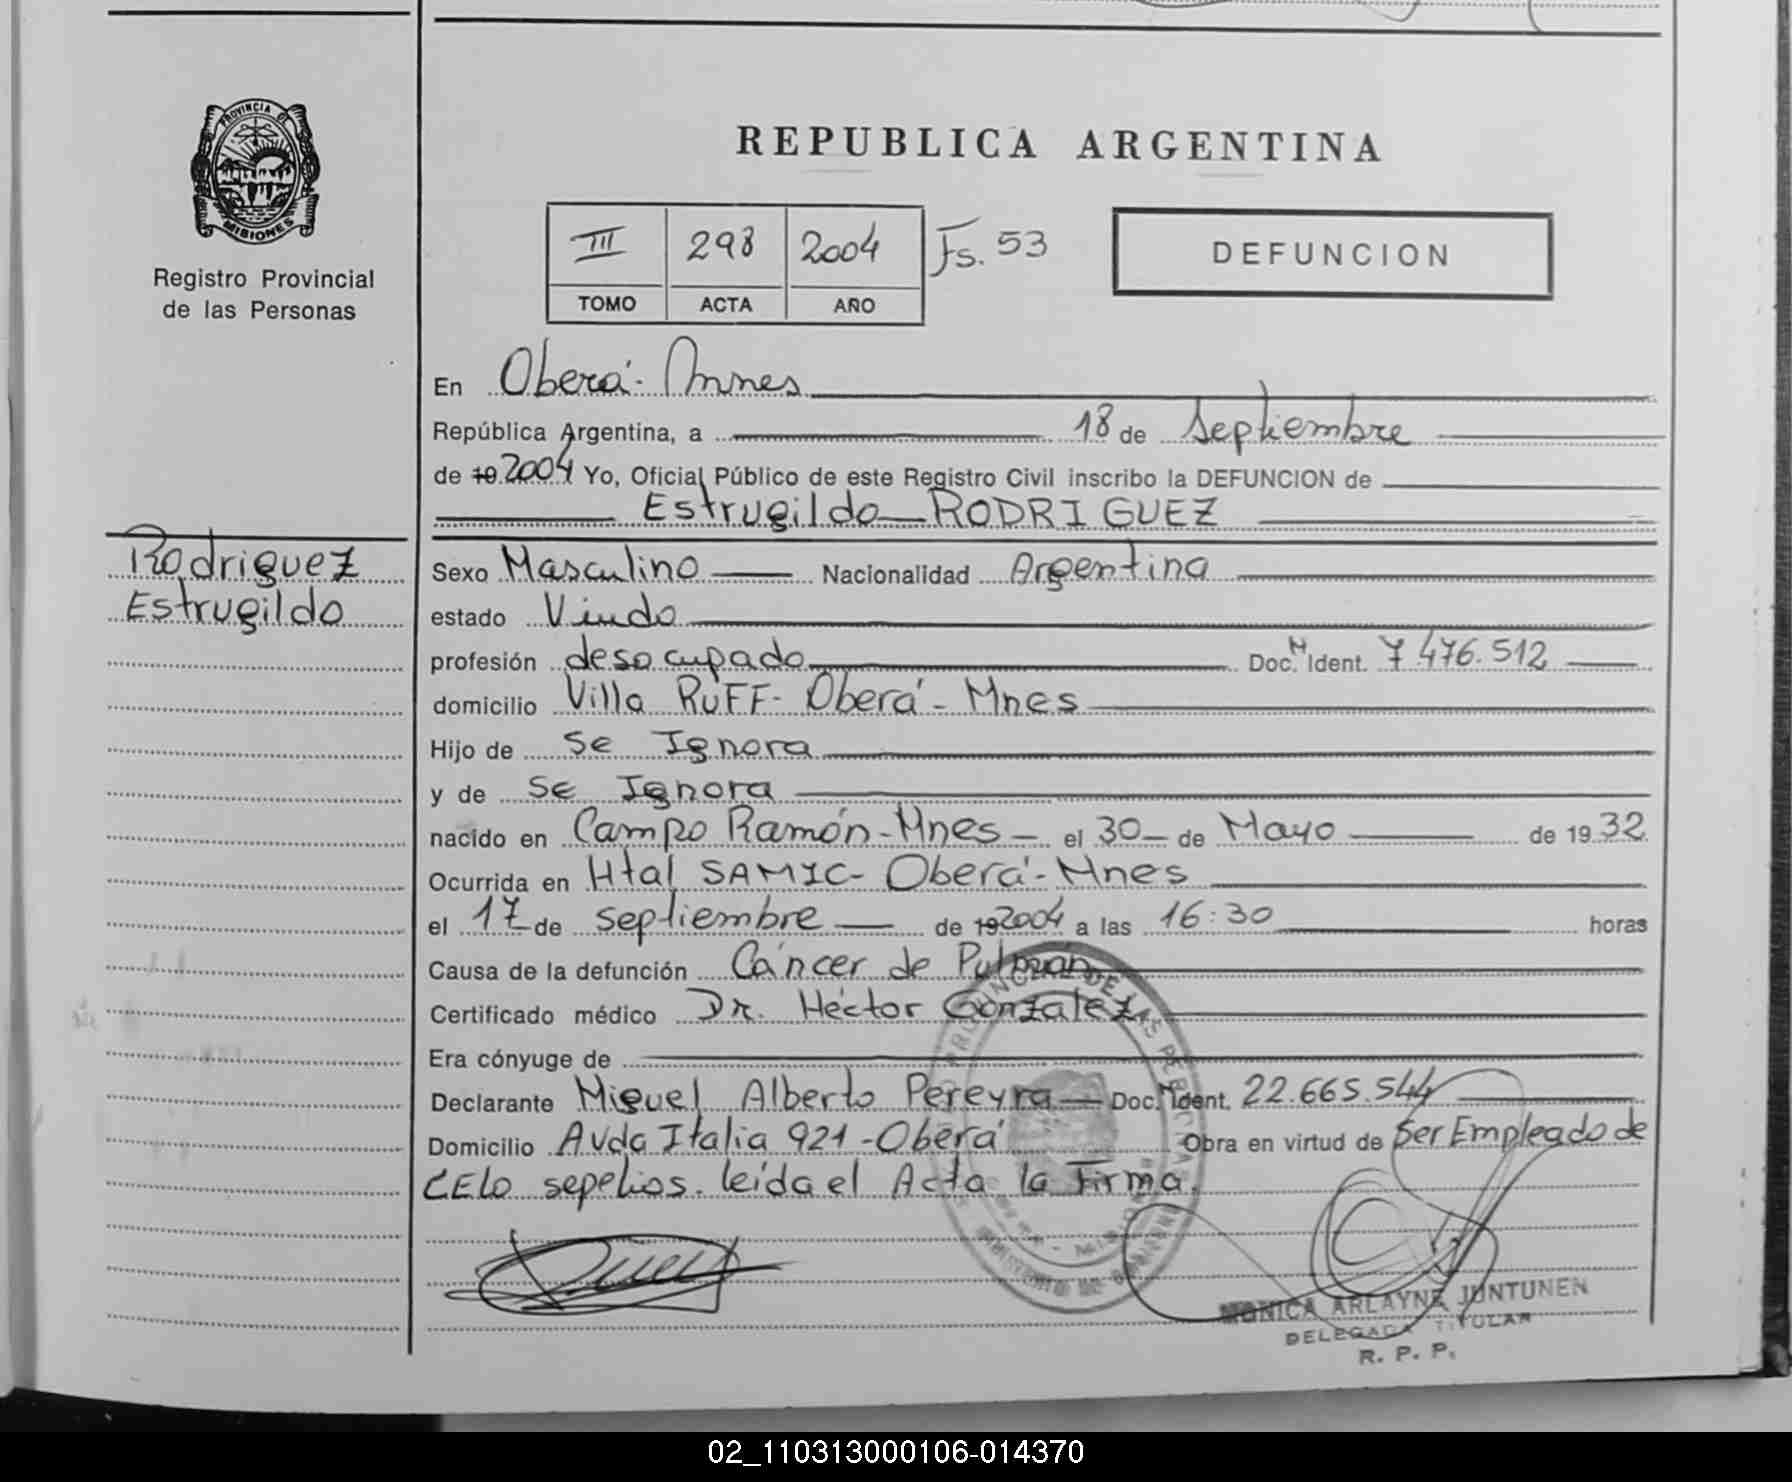 PROVINCIA DE
MISIONES
Registro Provincial
de las Personas
REPUBLICA ARGENTINA
III 298 2004 Fs. 53
TOMO ACTA AÑO
DEFUNCION
En Oberá - Mnes
República Argentina, a 18 de Septiembre
de 19 2004 Yo, Oficial Público de este Registro Civil inscribo la DEFUNCION de
Estrugildo RODRIGUEZ
Rodriguez
Estrugildo
Sexo Masculino Nacionalidad Argentina
estado Viudo
profesión desocupado Doc. M Ident. 7.476.512
domicilio Villa RUFF - Oberá - Mnes
Hijo de se Ignora
y de se Ignora
nacido en Campo Ramón - Mnes - el 30 de Mayo de 19 32
Ocurrida en Htal SAMIC - Oberá - Mnes
el 17 de septiembre de 19 2004 a las 16:30 horas
Causa de la defunción Cáncer de Pulmón
Certificado médico Dr. Héctor Gonzalez
Era cónyuge de
Declarante Miguel Alberto Pereyra Doc. M Ident. 22.665.544
Domicilio Avda Italia 921 - Oberá Obra en virtud de Ser Empleado de
CELO sepelios. leída el Acta la Firma.
MONICA ARLAYNE JUNTUNEN
DELEGADA TITULAR
R. P. P.
02_110313000106-014370